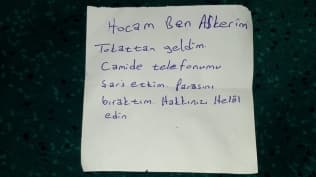 Hocam Ben Askerim
Tokattan geldim.
Camide telefonumu
Sarj ettim Parasını
bıraktım Hakkınızı Helal
edin